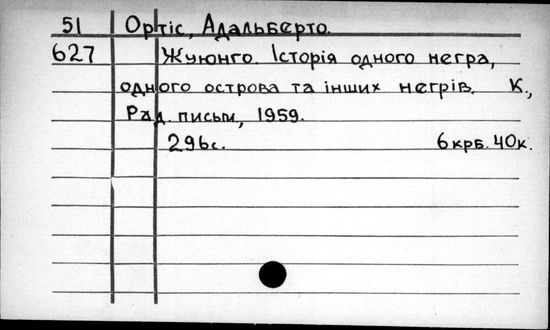 51 Ортіс, Адальберто.
627 Жуюнго. Історія одного негра,
одного острова та інших негрів. К.,
Рад. письм, 1959.
296с. 6 крб. 40к.